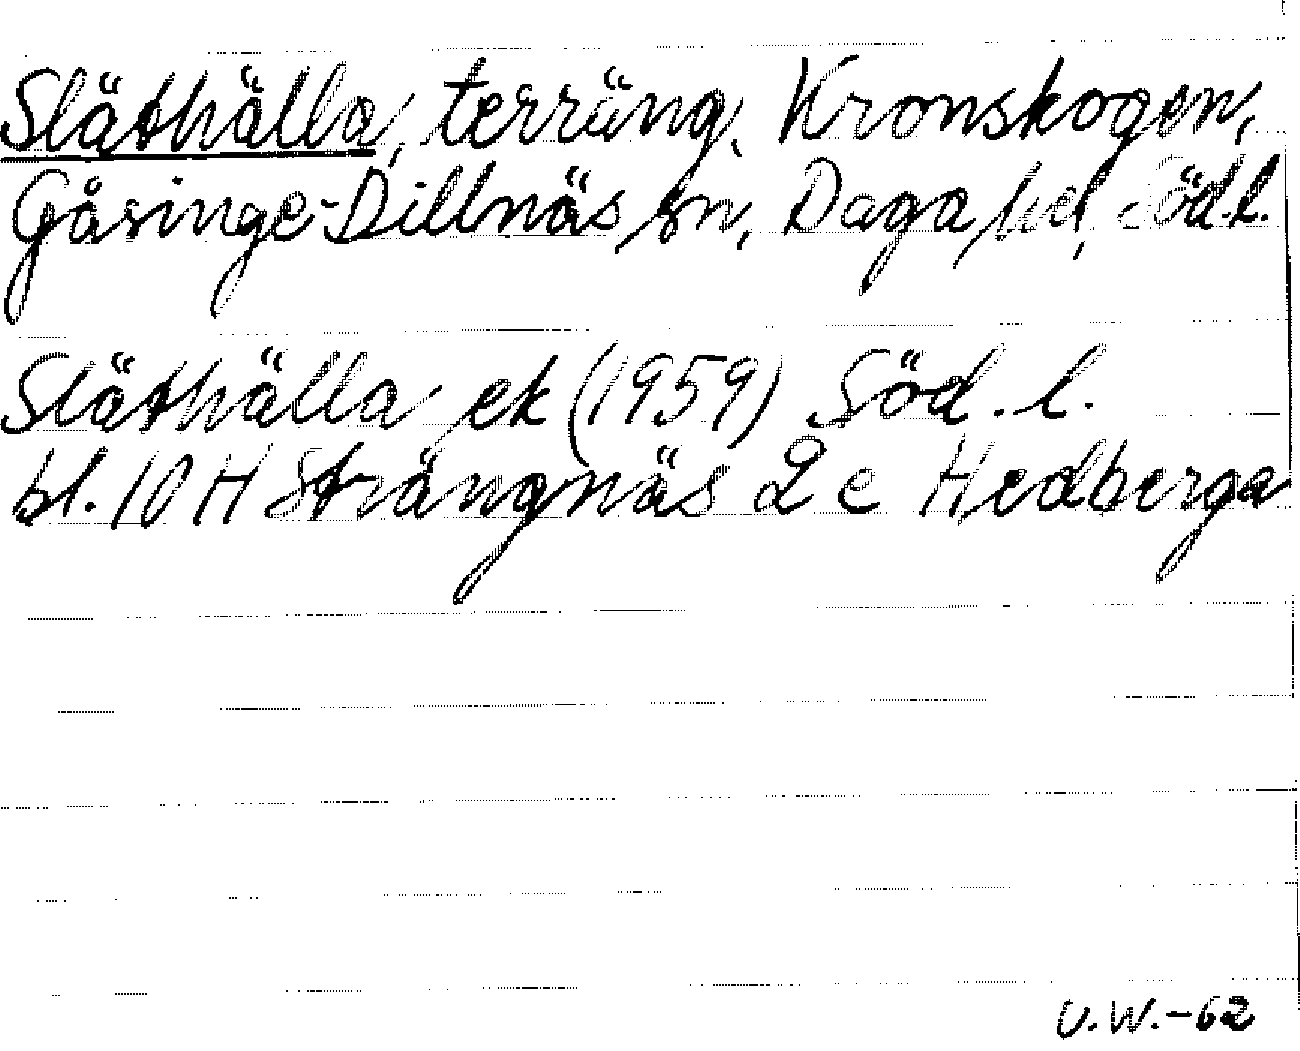 Släthälla, terräng, Kronskogen,
Gåsinge-Dillnäs sn, Daga hd, Söd.l.
Släthälla ek (1959) Söd. l.
bl. 10 H Strängnäs 2 c Hedberga
U.W.-62